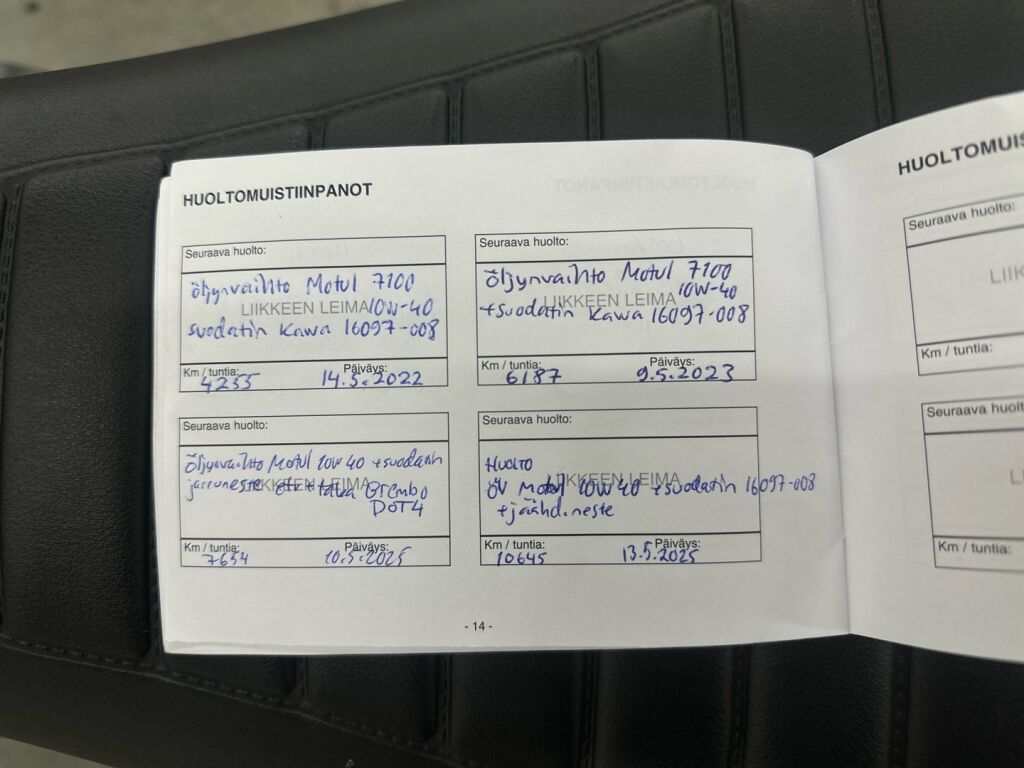 HUOLTOMUISTIINPANOT
Seuraava huolto:
öljynvaihto Motul 7100
LIIKKEEN LEIMA 10W-40
suodatin Kawa 16097-008
Km / tuntia: Päiväys:
4235 14.5.2022
Seuraava huolto:
öljynvaihto Motul 7100
LIIKKEEN LEIMA 10W-40
+suodatin Kawa 16097-008
Km / tuntia: Päiväys:
6187 9.5.2023
Seuraava huolto:
Öljynvaihto Motul 10W40 +suodatin
LIIKKEEN LEIMA
jarruneste etu+taka Brembo
DOT4
Km / tuntia: Päiväys:
7654 10.5.2025
Seuraava huolto:
HUOLTO
LIIKKEEN LEIMA
ÖV Motul 10W40 +suodatin 16097-008
+jäähd.neste
Km / tuntia: Päiväys:
10645 13.5.2025
- 14 -
HUOLTOMUIS
Seuraava huolto:
LIIK
Km / tuntia:
Seuraava huolt
L
Km / tuntia: